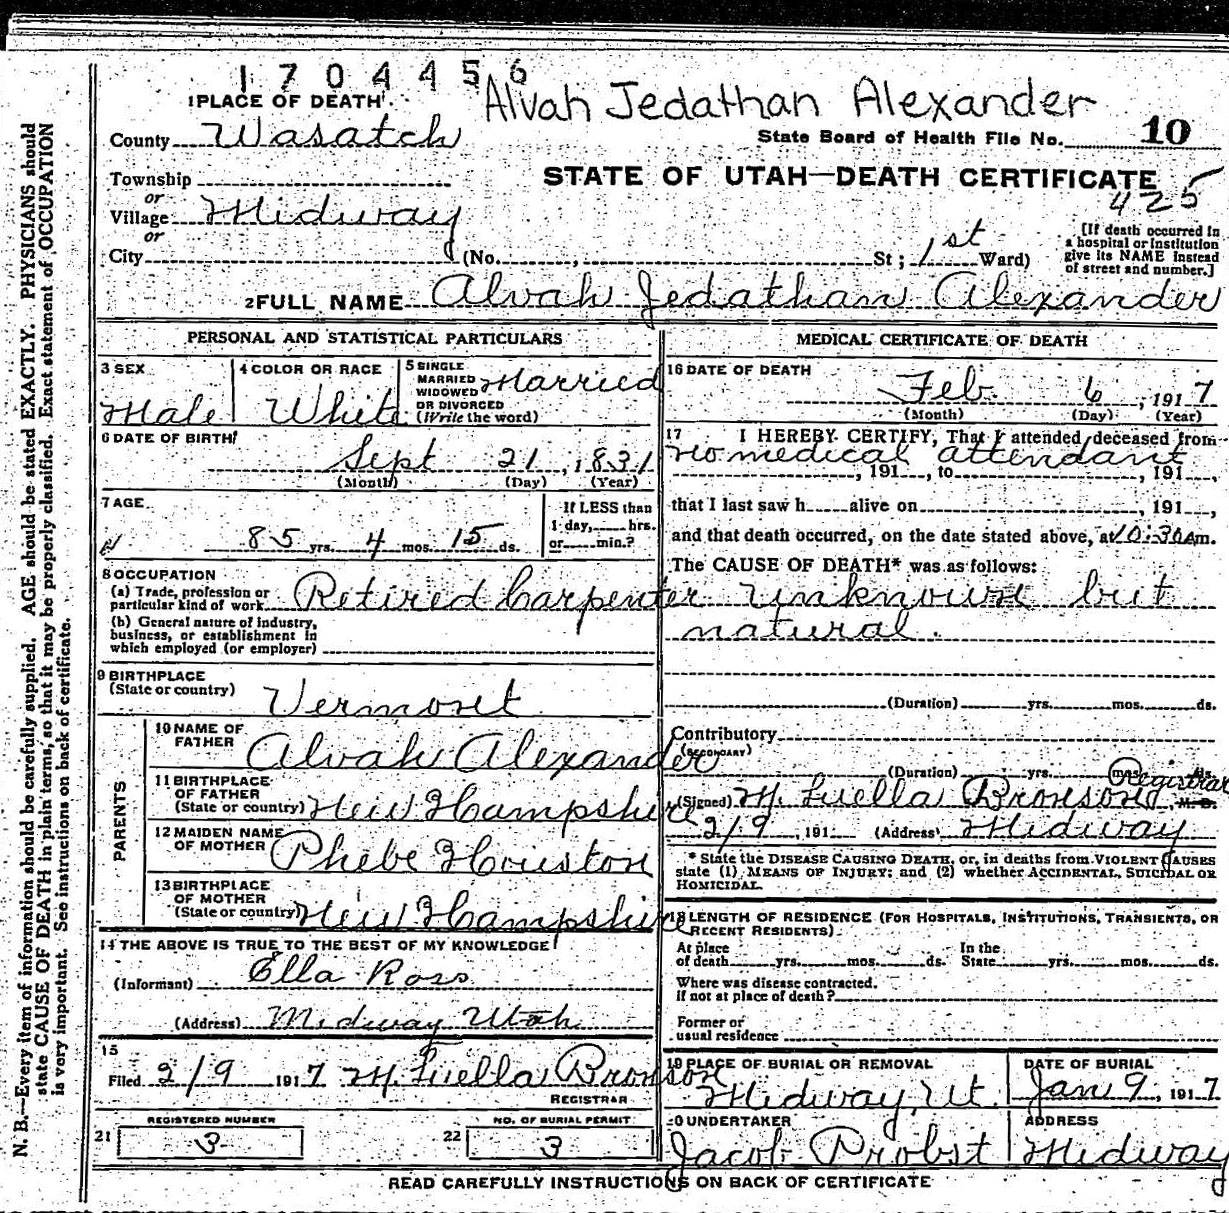 1704456
Alvah Jedathan Alexander
1 PLACE OF DEATH
County Wasatch
State Board of Health File No. 10
Township
STATE OF UTAH—DEATH CERTIFICATE
425
or
Village Midway
or
City (No. , St ; 1st Ward)
[If death occurred in
a hospital or institution
give its NAME instead
of street and number.]
2 FULL NAME Alvah Jedathan Alexander
PERSONAL AND STATISTICAL PARTICULARS
3 SEX
Male
4 COLOR OR RACE
White
5 SINGLE
MARRIED
WIDOWED
OR DIVORCED
(Write the word)
Married
6 DATE OF BIRTH
Sept 21, 1831
(Month) (Day) (Year)
7 AGE
85 yrs. 4 mos. 15 ds.
If LESS than
1 day, hrs.
or min.?
8 OCCUPATION
(a) Trade, profession or
particular kind of work Retired Carpenter
(b) General nature of industry,
business, or establishment in
which employed (or employer)
9 BIRTHPLACE
(State or country)
Vermont
PARENTS
10 NAME OF
FATHER
Alvah Alexander
11 BIRTHPLACE
OF FATHER
(State or country) New Hampshire
12 MAIDEN NAME
OF MOTHER
Phebe Houston
13 BIRTHPLACE
OF MOTHER
(State or country) New Hampshire
14 THE ABOVE IS TRUE TO THE BEST OF MY KNOWLEDGE
(Informant) Ella Ross
(Address) Midway Utah
15
Filed 2/9 1917 M. Luella Bronson
REGISTRAR
REGISTERED NUMBER
21 3
NO. OF BURIAL PERMIT
22 3
MEDICAL CERTIFICATE OF DEATH
16 DATE OF DEATH
Feb. 6, 1917
(Month) (Day) (Year)
17 I HEREBY CERTIFY, That I attended deceased from
No medical attendant
, 191 , to , 191 ,
that I last saw h alive on , 191 ,
and that death occurred, on the date stated above, at 10:30 am.
The CAUSE OF DEATH* was as follows:
unknown but
natural.
(Duration) yrs. mos. ds.
Contributory
(SECONDARY)
(Duration) yrs. mos. ds.
Registrar
(Signed) M. Luella Bronson, M. D.
2/9, 191 (Address) Midway
* State the DISEASE CAUSING DEATH, or, in deaths from VIOLENT CAUSES
state (1) MEANS OF INJURY; and (2) whether ACCIDENTAL, SUICIDAL OR
HOMICIDAL.
18 LENGTH OF RESIDENCE (FOR HOSPITALS, INSTITUTIONS, TRANSIENTS, OR
RECENT RESIDENTS)
At place
of death yrs. mos. ds.
In the
State yrs. mos. ds.
Where was disease contracted,
If not at place of death?
Former or
usual residence
19 PLACE OF BURIAL OR REMOVAL
Midway, Ut.
DATE OF BURIAL
Jan 9, 1917
20 UNDERTAKER
Jacob Probst
ADDRESS
Midway
READ CAREFULLY INSTRUCTIONS ON BACK OF CERTIFICATE
N. B.—Every item of information should be carefully supplied. AGE should be stated EXACTLY. PHYSICIANS should
state CAUSE OF DEATH in plain terms, so that it may be properly classified. Exact statement of OCCUPATION
is very important. See instructions on back of certificate.